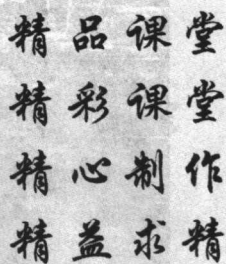 精品课堂
精彩课堂
精心制作
精益求精